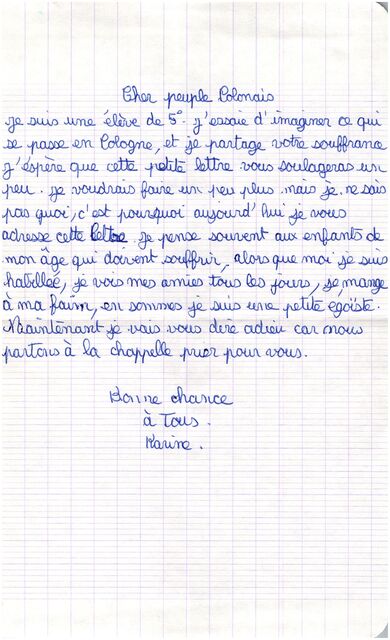 Cher peuple Polonais
je suis une élève de 5° j'essaie d'imaginer ce qui
se passe en Pologne, et je partage votre souffrance
j'éspère que cette petite lettre vous soulageras un
peu. je voudrais faire un peu plus mais je ne sais
pas quoi, c'est pourquoi aujourd'hui je vous
adresse cette lettre. je pense souvent aux enfants de
mon âge qui doivent souffrir, alors que moi je suis
habilleé, je vois mes amies tous les jours, je mange
à ma faim, en sommes je suis une petite égoïste.
Maintenant je vais vous dire adieu car nous
partons à la chappelle prier pour vous.
Bonne chance
à Tous.
Karine.